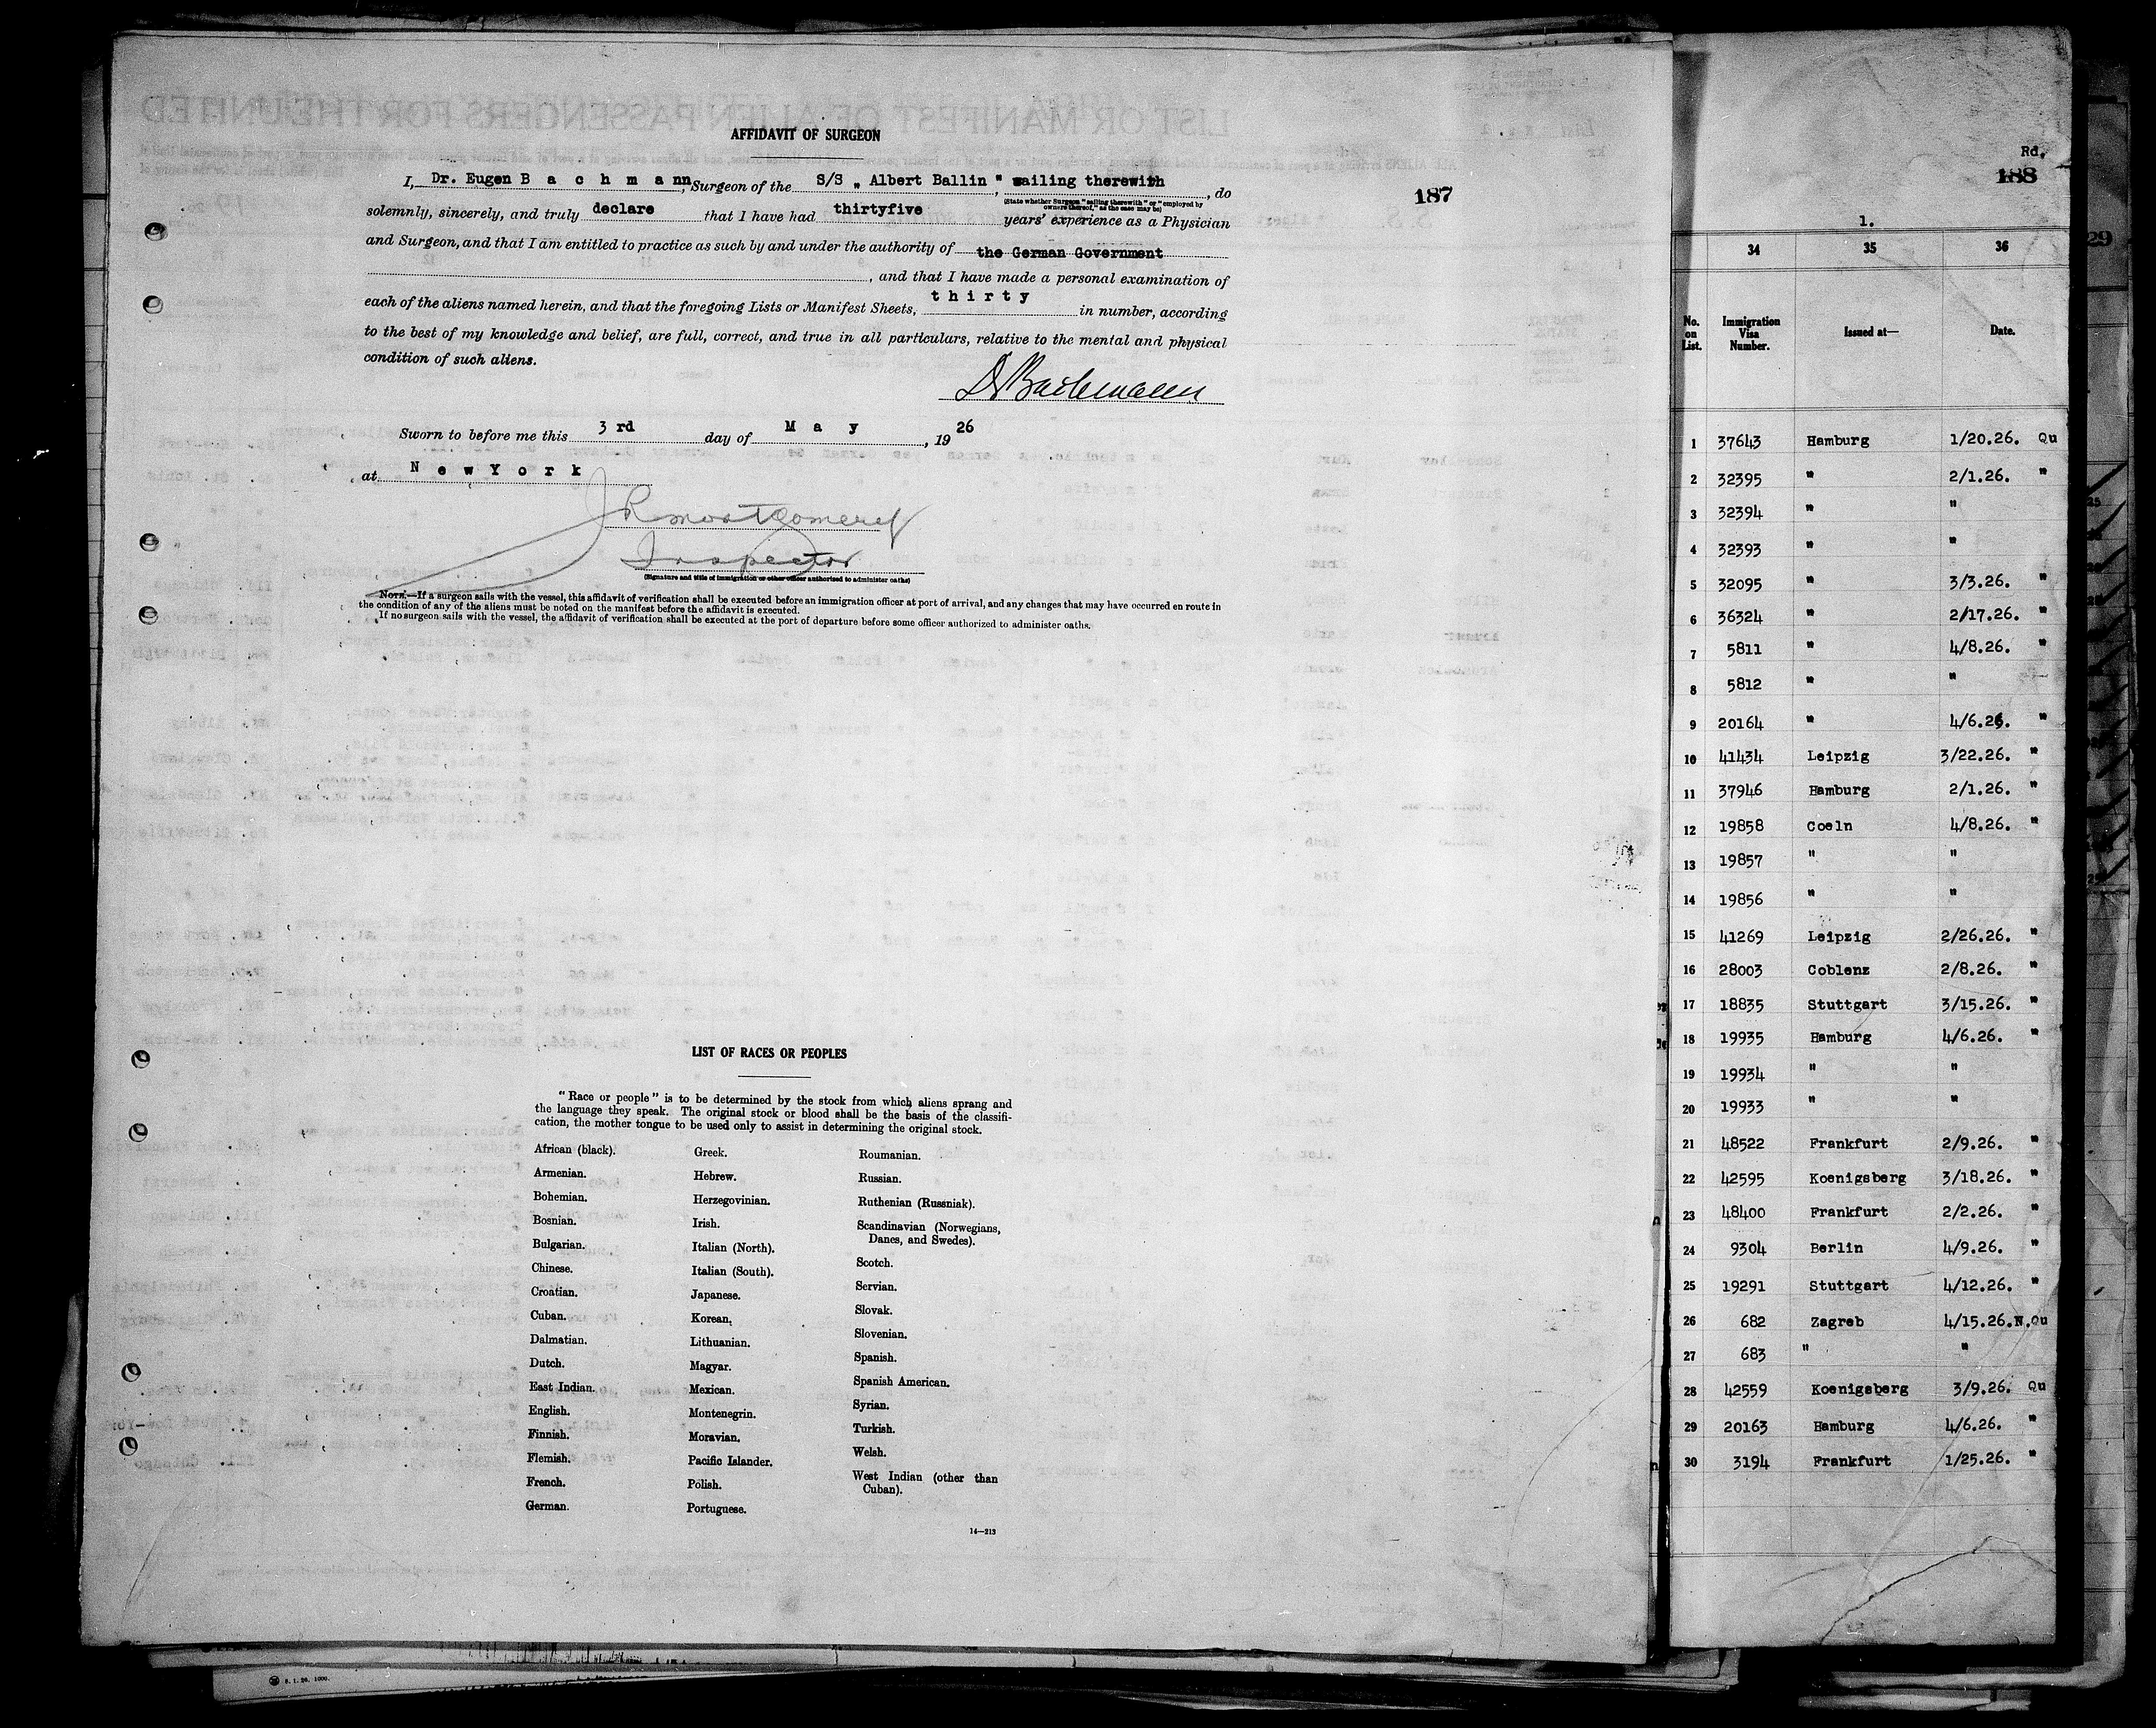 AFFIDAVIT OF SURGEON
I, Dr. Eugen B a c h m a nn, Surgeon of the S/S „ Albert Ballin " sailing therewith, do
(State whether Surgeon "sailing therewith" or "employed by
owners thereof," as the case may be)
solemnly, sincerely, and truly declare that I have had thirtyfive years' experience as a Physician
and Surgeon, and that I am entitled to practice as such by and under the authority of the German Government
, and that I have made a personal examination of
each of the aliens named herein, and that the foregoing Lists or Manifest Sheets, t h i r t y in number, according
to the best of my knowledge and belief, are full, correct, and true in all particulars, relative to the mental and physical
condition of such aliens.
Dr Bachmann
Sworn to before me this 3 rd day of M a y, 19 26
at N e w Y o r k
J R Montgomery
Inspector
(Signature and title of immigration or other officer authorized to administer oaths)
NOTE.—If a surgeon sails with the vessel, this affidavit of verification shall be executed before an immigration officer at port of arrival, and any changes that may have occurred en route in
the condition of any of the aliens must be noted on the manifest before the affidavit is executed.
If no surgeon sails with the vessel, the affidavit of verification shall be executed at the port of departure before some officer authorized to administer oaths.
187
LIST OF RACES OR PEOPLES
"Race or people" is to be determined by the stock from which aliens sprang and
the language they speak. The original stock or blood shall be the basis of the classifi-
cation, the mother tongue to be used only to assist in determining the original stock.
African (black).
Armenian.
Bohemian.
Bosnian.
Bulgarian.
Chinese.
Croatian.
Cuban.
Dalmatian.
Dutch.
East Indian.
English.
Finnish.
Flemish.
French.
German.
Greek.
Hebrew.
Herzegovinian.
Irish.
Italian (North).
Italian (South).
Japanese.
Korean.
Lithuanian.
Magyar.
Mexican.
Montenegrin.
Moravian.
Pacific Islander.
Polish.
Portuguese.
Roumanian.
Russian.
Ruthenian (Russniak).
Scandinavian (Norwegians,
Danes, and Swedes).
Scotch.
Servian.
Slovak.
Slovenian.
Spanish.
Spanish American.
Syrian.
Turkish.
Welsh.
West Indian (other than
Cuban).
14—213
Rd.
188
1.
34 35 36
No. on List. Immigration Visa Number. Issued at— Date.
1 37643 Hamburg 1/20.26. Qu
2 32395 " 2/1.26. "
3 32394 " "
4 32393 " "
5 32095 " 3/3.26. "
6 36324 " 2/17.26. "
7 5811 " 4/8.26. "
8 5812 " "
9 20164 " 4/6.26. "
10 41434 Leipzig 3/22.26. "
11 37946 Hamburg 2/1.26. "
12 19858 Coeln 4/8.26. "
13 19857 " "
14 19856 " "
15 41269 Leipzig 2/26.26. "
16 28003 Coblenz 2/8.26. "
17 18835 Stuttgart 3/15.26. "
18 19935 Hamburg 4/6.26. "
19 19934 " "
20 19933 " "
21 48522 Frankfurt 2/9.26. "
22 42595 Koenigsberg 3/18.26. "
23 48400 Frankfurt 2/2.26. "
24 9304 Berlin 4/9.26. "
25 19291 Stuttgart 4/12.26. "
26 682 Zagreb 4/15.26.N.Qu
27 683 " "
28 42559 Koenigsberg 3/9.26. Qu
29 20163 Hamburg 4/6.26. "
30 3194 Frankfurt 1/25.26. "
29
8. 1. 26. 1000.